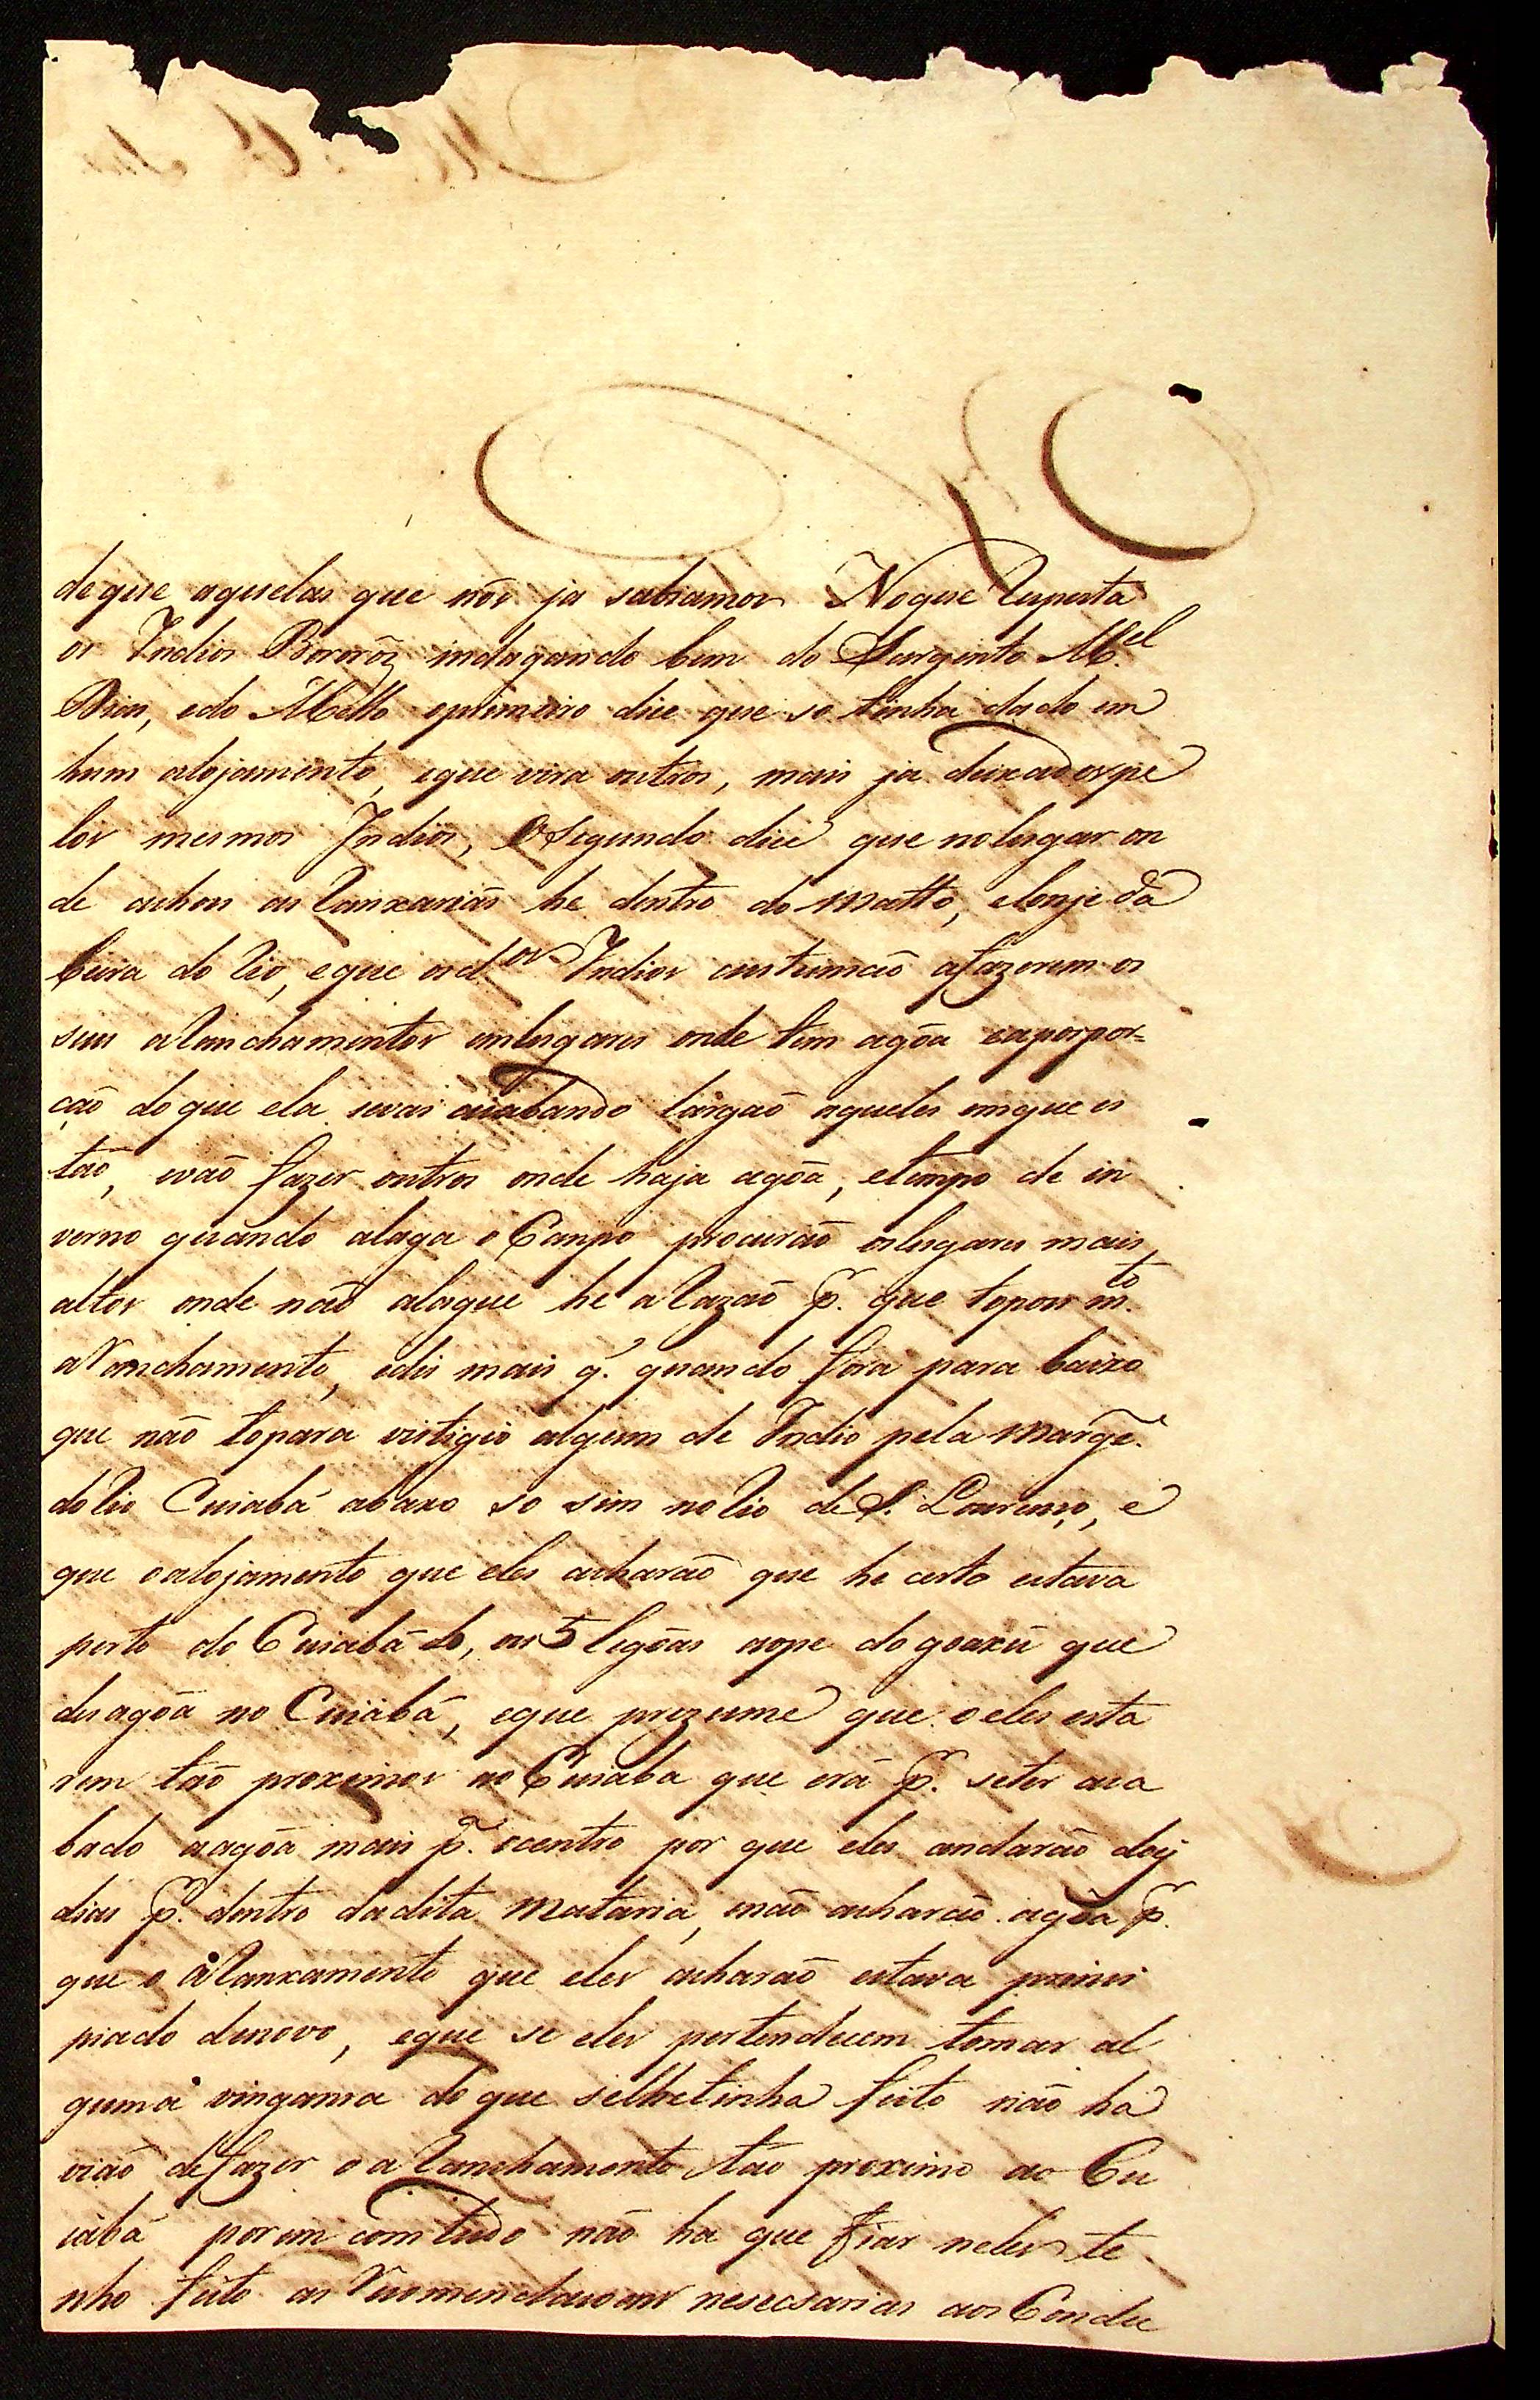 deque aquelas que nós ja sabiamos Noque Resperta
os Indios Bororôz indagando bem do Sargento M.el
Dias, edo Mello oprimeiro dice que so tinha dado em
hum alojamento, eque vira outros, mais ja deixados pe
los mesmos Indios, O Segundo dice que nolugar on
de achou as Ranxarias he dentro do matto, elonje da
beira do Rio, eque osd.os Indios custumaõ afazerem os
seus aRanchamentos emlugares onde tem agôa eaporpor=
çaõ doque ela sevai acabando largaõ aqueles emque es
taõ, evaõ fazer outros onde haja agôa, etempo de in
verno quando alaga o Canpo procuraõ oslugares mais
altos onde naõ alague he aRazaõ p. que topou m.to
aRanchamento, edis mais q. quando fora para baixo
que naõ topara vistigio algum de Indio pela marge.
doRio Cuiabá abaxo so sim noRio de S. Lourenço, e
que oalojamento que eles acharaõ que he certo estava
perto do Cuiabá ou 5 legôas aope do goaxú que
desagôa no Cuiabá, eque prezume que o eles esta
rem taõ proximos ao Cuiaba que erá p. seter aca
bado aagôa mais p.a ocentro por que eles andaraõ dois
dias p. dentro dadita mataria, enaõ acharaõ agôa p.
que o aRanxamento que eles acharaõ estava prinsi
piado denovo, eque se eles pertendecem tomar al
guma vingansa do que selhetinha feito naõ ha
viaõ de fazer o aRanchamento taõ proximo ao Cu
iabá porem com tudo naõ ha que fiar neles te
nho feito as Recomendasoens nesecsarias aos Condu